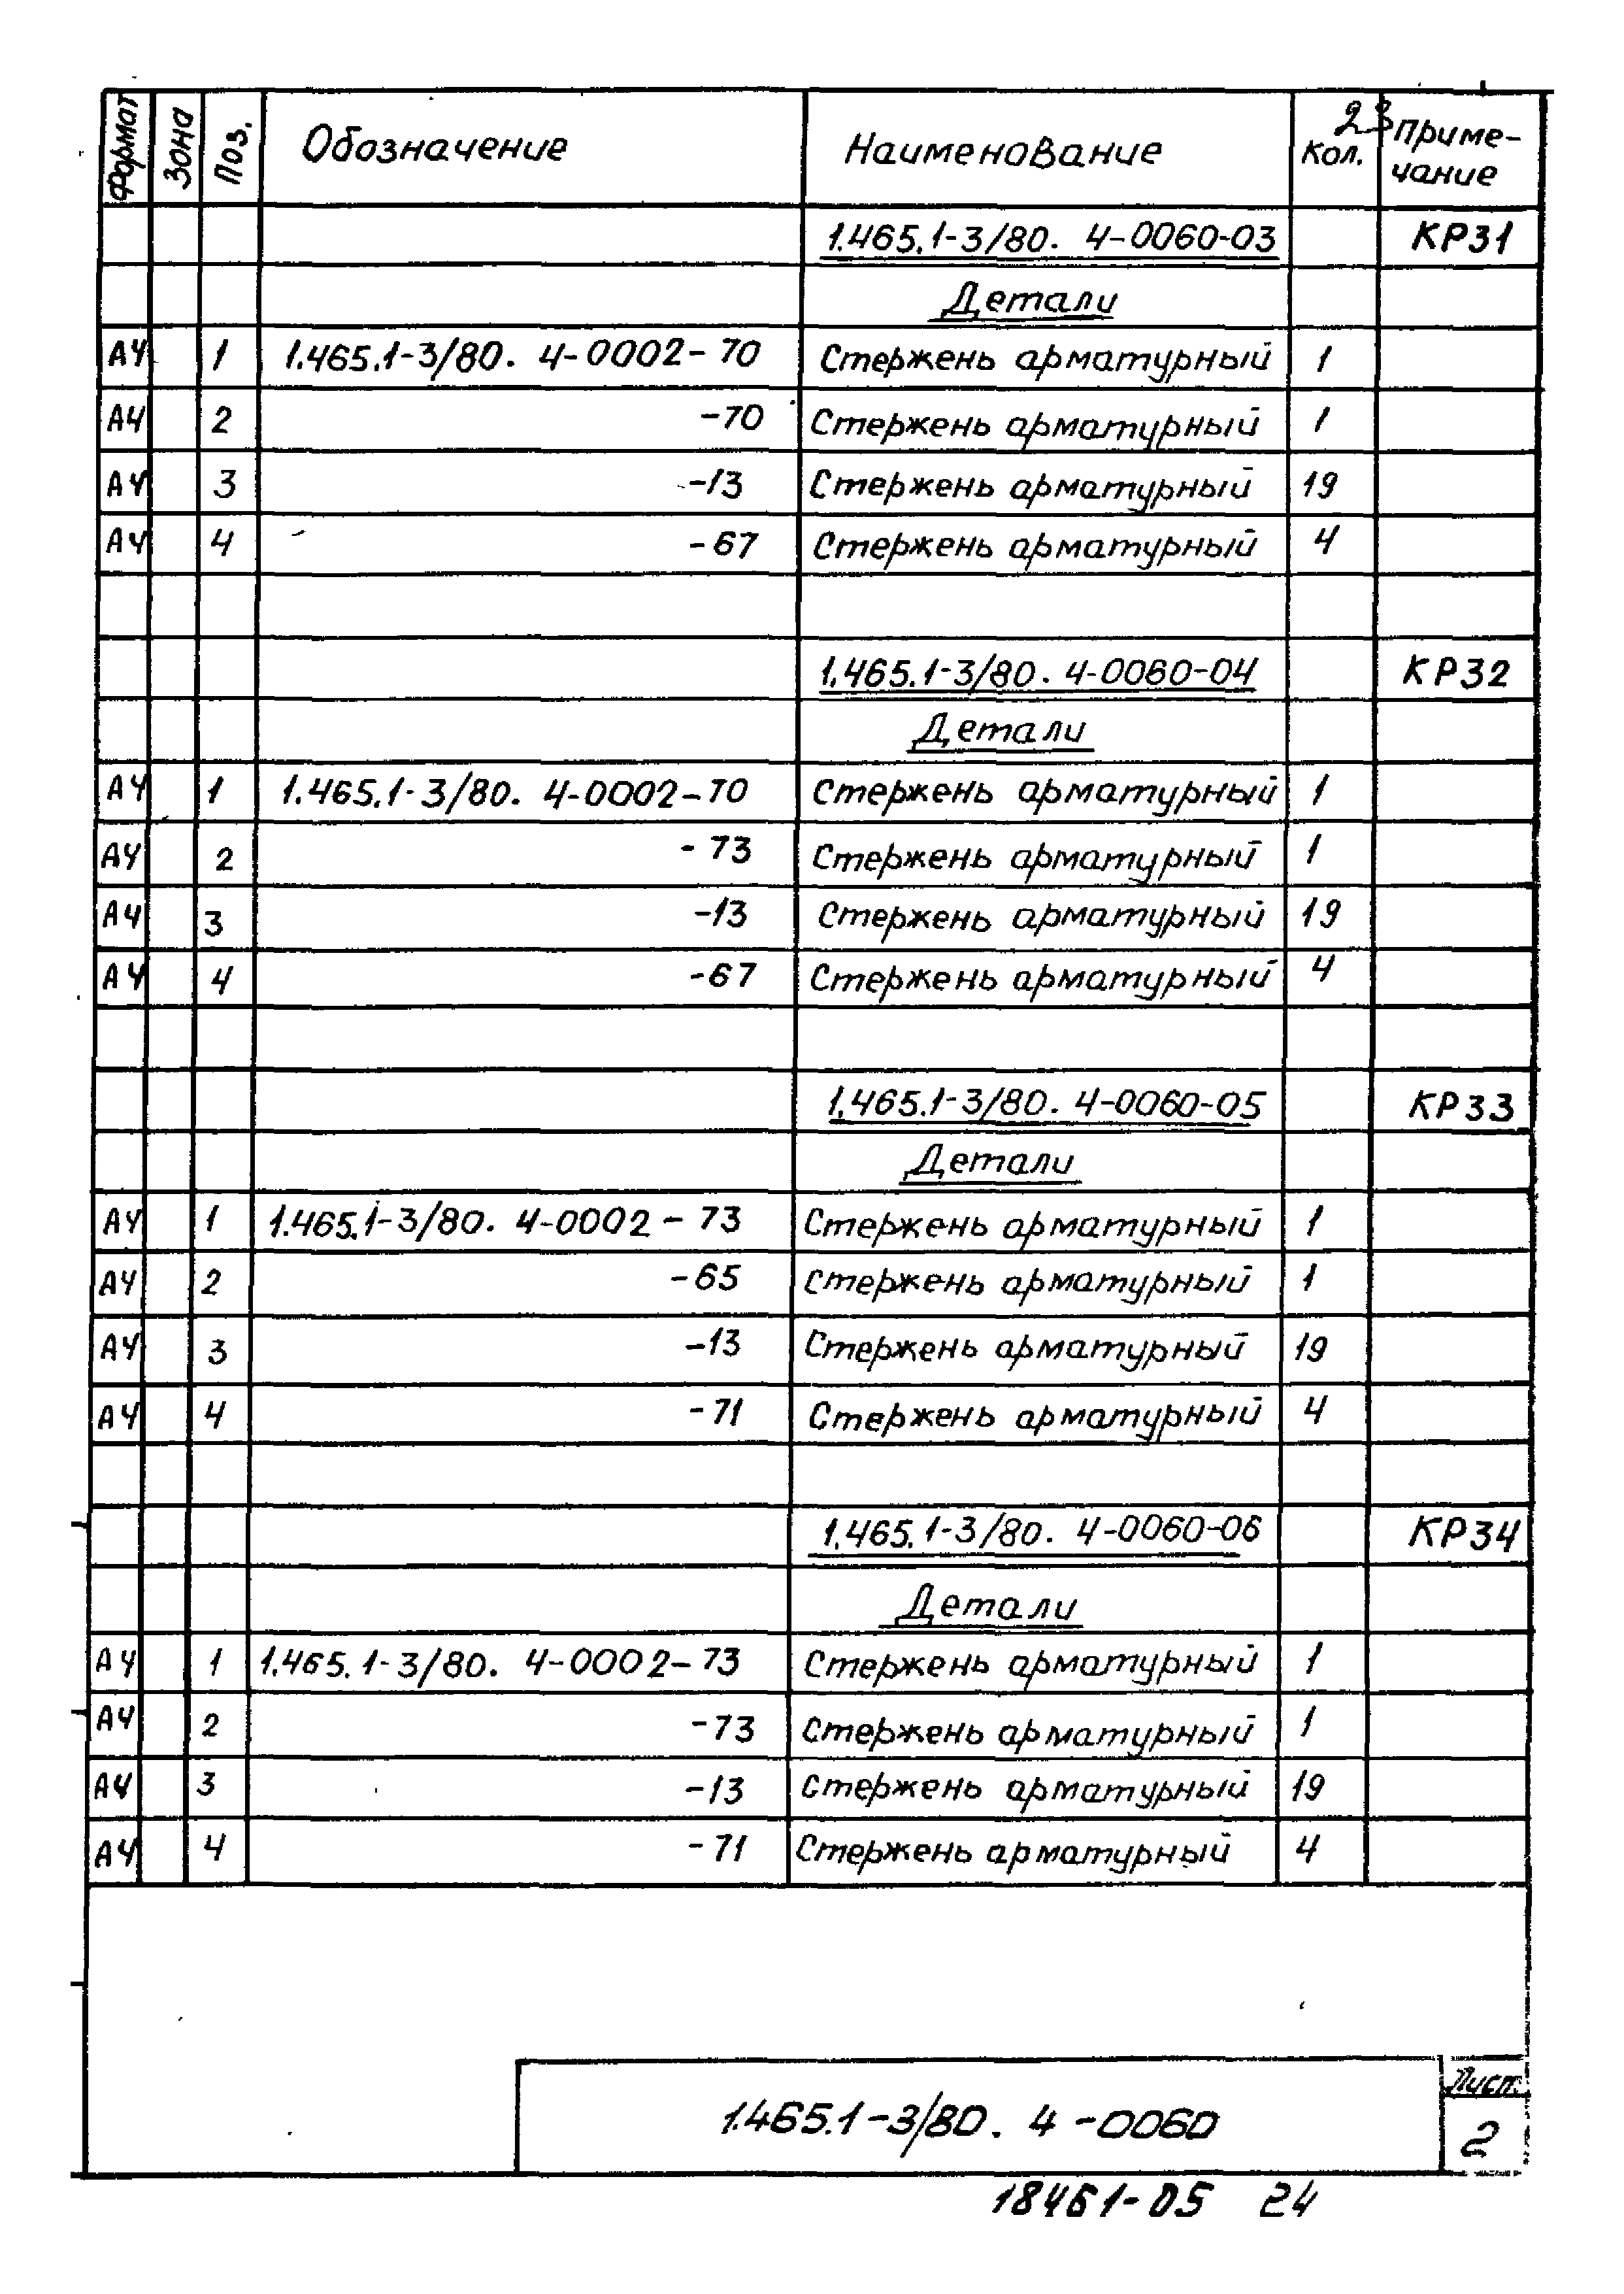 23
Формат Зона Поз. Обозначение Наименование Кол. Приме-
чание
1.465.1-3/80. 4-0060-03 КР31
Детали
А4 1 1.465.1-3/80. 4-0002-70 Стержень арматурный 1
А4 2 -70 Стержень арматурный 1
А4 3 -13 Стержень арматурный 19
А4 4 -67 Стержень арматурный 4
1.465.1-3/80. 4-0060-04 КР32
Детали
А4 1 1.465.1-3/80. 4-0002-70 Стержень арматурный 1
А4 2 -73 Стержень арматурный 1
А4 3 -13 Стержень арматурный 19
А4 4 -67 Стержень арматурный 4
1.465.1-3/80. 4-0060-05 КР33
Детали
А4 1 1.465.1-3/80. 4-0002-73 Стержень арматурный 1
А4 2 -65 Стержень арматурный 1
А4 3 -13 Стержень арматурный 19
А4 4 -71 Стержень арматурный 4
1.465.1-3/80. 4-0060-06 КР34
Детали
А4 1 1.465.1-3/80. 4-0002-73 Стержень арматурный 1
А4 2 -73 Стержень арматурный 1
А4 3 -13 Стержень арматурный 19
А4 4 -71 Стержень арматурный 4
Лист
1.465.1-3/80. 4-0060 2
18461-05 24